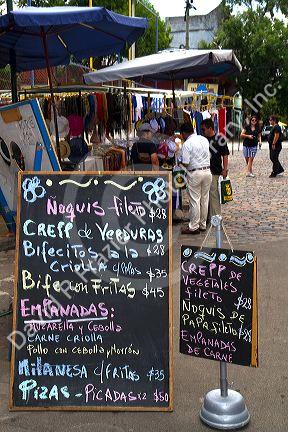 Ñoquis fileto $28
CREPP de VERDURAS
Bifecitos a la $28
CRiOllA c/PApAs $35
Bife con FRiTAS $45
EMPANADAS:
MuzARellA y Cebolla
CARNE CRiollA
Pollo con cebolla y Morrón
MilANESA c/FRiTAS $35
PiZAS - PiCADAS x2 $50
CREPP DE
VEGETALES
fileto $28
ÑOQUIS DE
PAPA fileto $28
EMPANADAS
DE CARNE